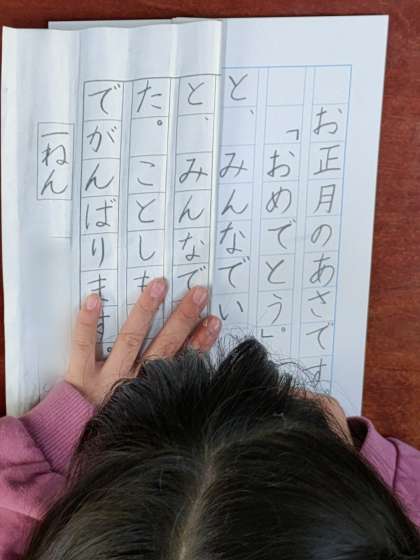 お正月のあさです
「おめでとう」。
と、みんなでい
と、みんなで
た。ことしも
でがんばります。
一ねん